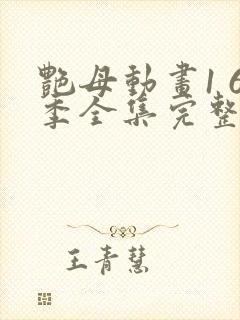 艷母動畫1 6
季全集完整
王青慧